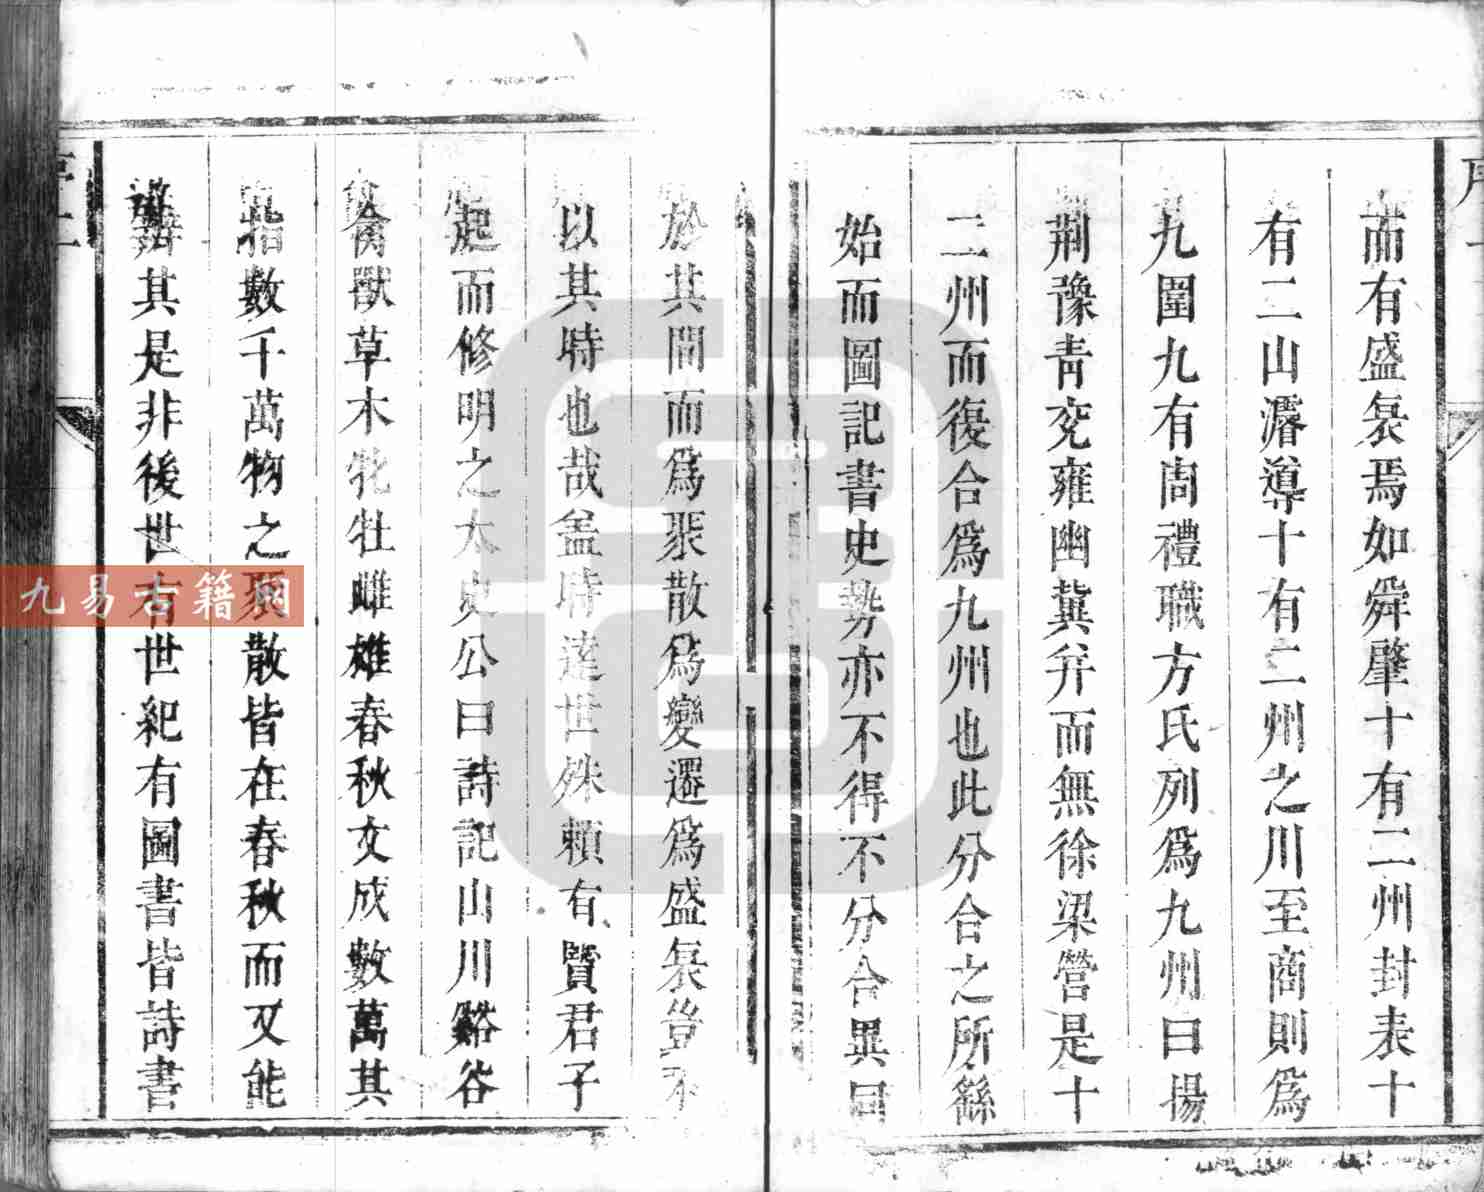 而有盛衰焉如舜肇十有二州封表十
有二山濬導十有二州之川至商則為
九圍九有周禮職方氏列為九州曰揚
荊豫青兗雍幽冀并而無徐梁營是十
二州而復合為九州也此分合之所繇
始而圖記書史勢亦不得不分合異同
於其間而為聚散為變遷為盛衰豈不
以其時也哉盖時達世殊賴有賢君子
起而修明之太史公曰詩記山川谿谷
禽獸草木牝牡雌雄春秋文成數萬其
指數千萬物之聚散皆在春秋而又能
辯其是非後世有世紀有圖書皆詩書
九易古籍网
序一